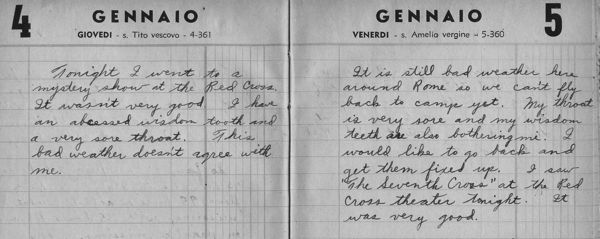 4
GENNAIO
GIOVEDI - s. Tito vescovo - 4-361
Tonight I went to a
mystery show at the Red Cross.
It wasn't very good I have
an abcessed wisdom tooth and
a very sore throat. This
bad weather doesn't agree with
me.
GENNAIO
5
VENERDI - s. Amelio vergine - 5-360
It is still bad weather here
around Rome so we can't fly
back to camp yet. My throat
is very sore and my wisdom
teeth are also bothering me. I
would like to go back and
get them fixed up. I saw
"The Seventh Cross" at the Red
Cross theater tonight. It
was very good.